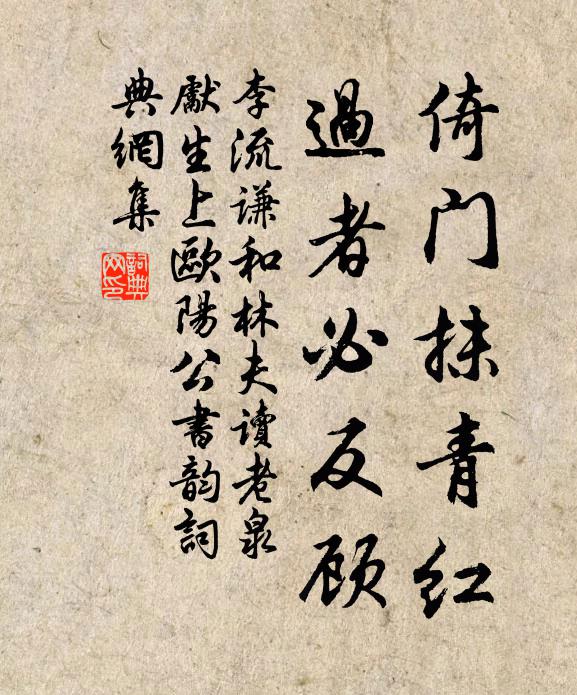 倚门抹青红
過者必反顾
李流谦和林夫讀老泉
獻生上歐陽公書韵詞
典網集
詞典網印